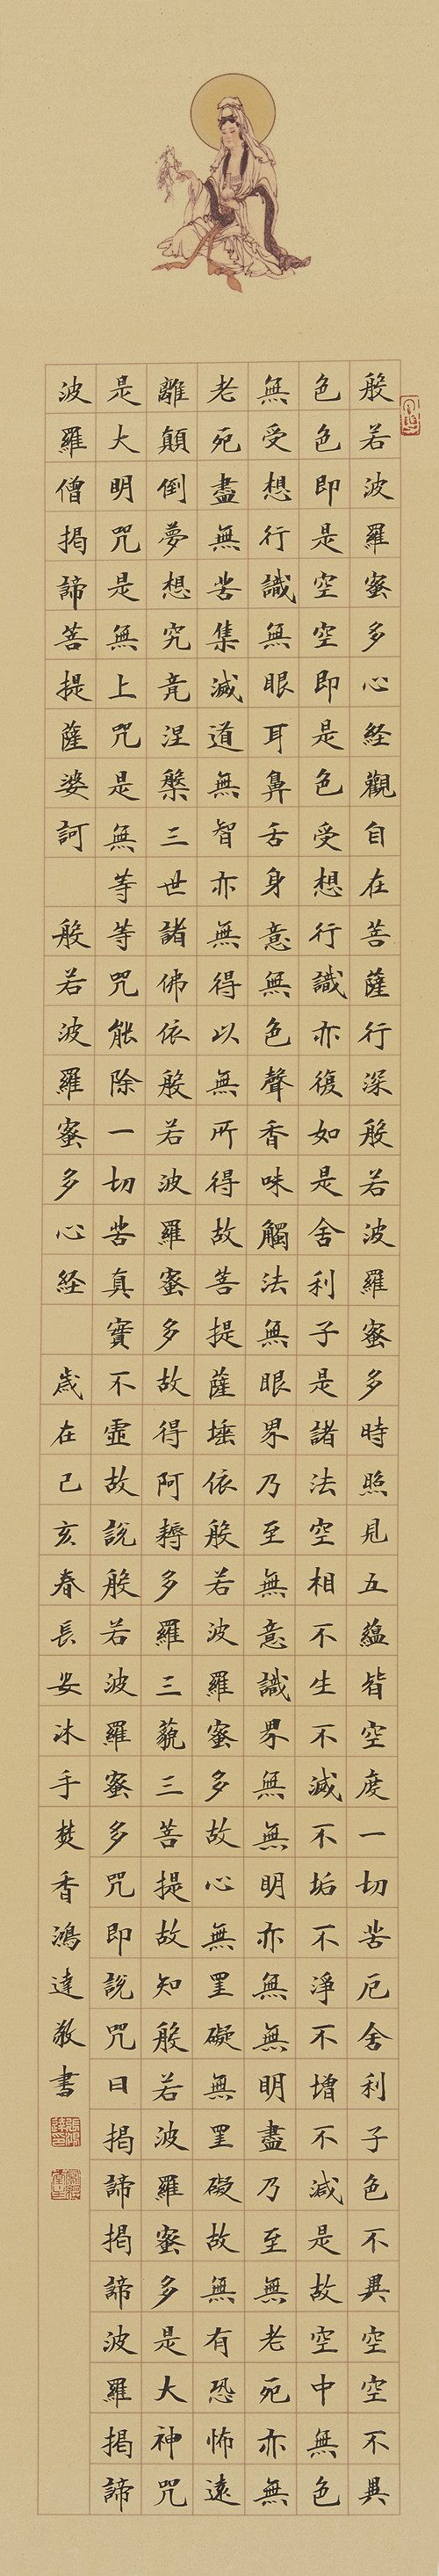 般若波羅蜜多心経觀自在菩薩行深般若波羅蜜多時照見五蘊皆空度一切苦厄舍利子色不異空空不異
色色即是空空即是色受想行識亦復如是舍利子是諸法空相不生不滅不垢不淨不增不減是故空中無色
無受想行識無眼耳鼻舌身意無色聲香味觸法無眼界乃至無意識界無無明亦無無明盡乃至無老死亦無
老死盡無苦集滅道無智亦無得以無所得故菩提薩埵依般若波羅蜜多故心無罣礙無罣礙故無有恐怖遠
離顛倒夢想究竟涅槃三世諸佛依般若波羅蜜多故得阿耨多羅三藐三菩提故知般若波羅蜜多是大神咒
是大明咒是無上咒是無等等咒能除一切苦真實不虛故說般若波羅蜜多咒即說咒曰揭諦揭諦波羅揭諦
波羅僧揭諦菩提薩婆訶 般若波羅蜜多心経 歲在己亥春長安沐手焚香鴻達敬書